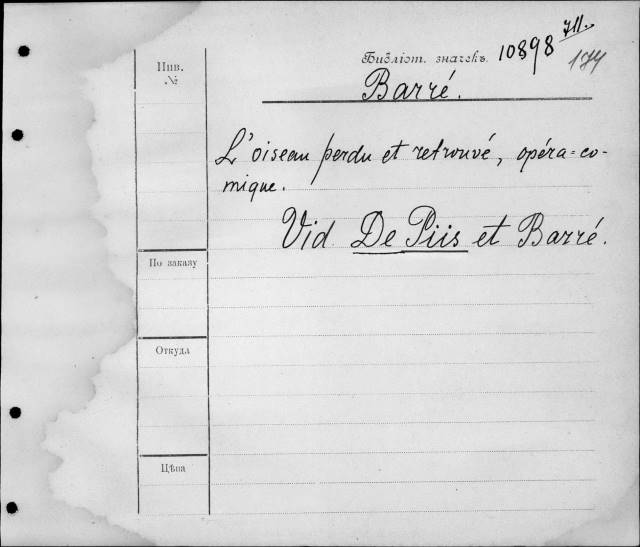 711.
Инв. №
Библіот. значекъ. 10898
174
Barré.
L'oiseau perdu et retrouvé, opéra=co-
mique.
Vid. De Piis et Barré.
По заказу
Откуда
Цѣна